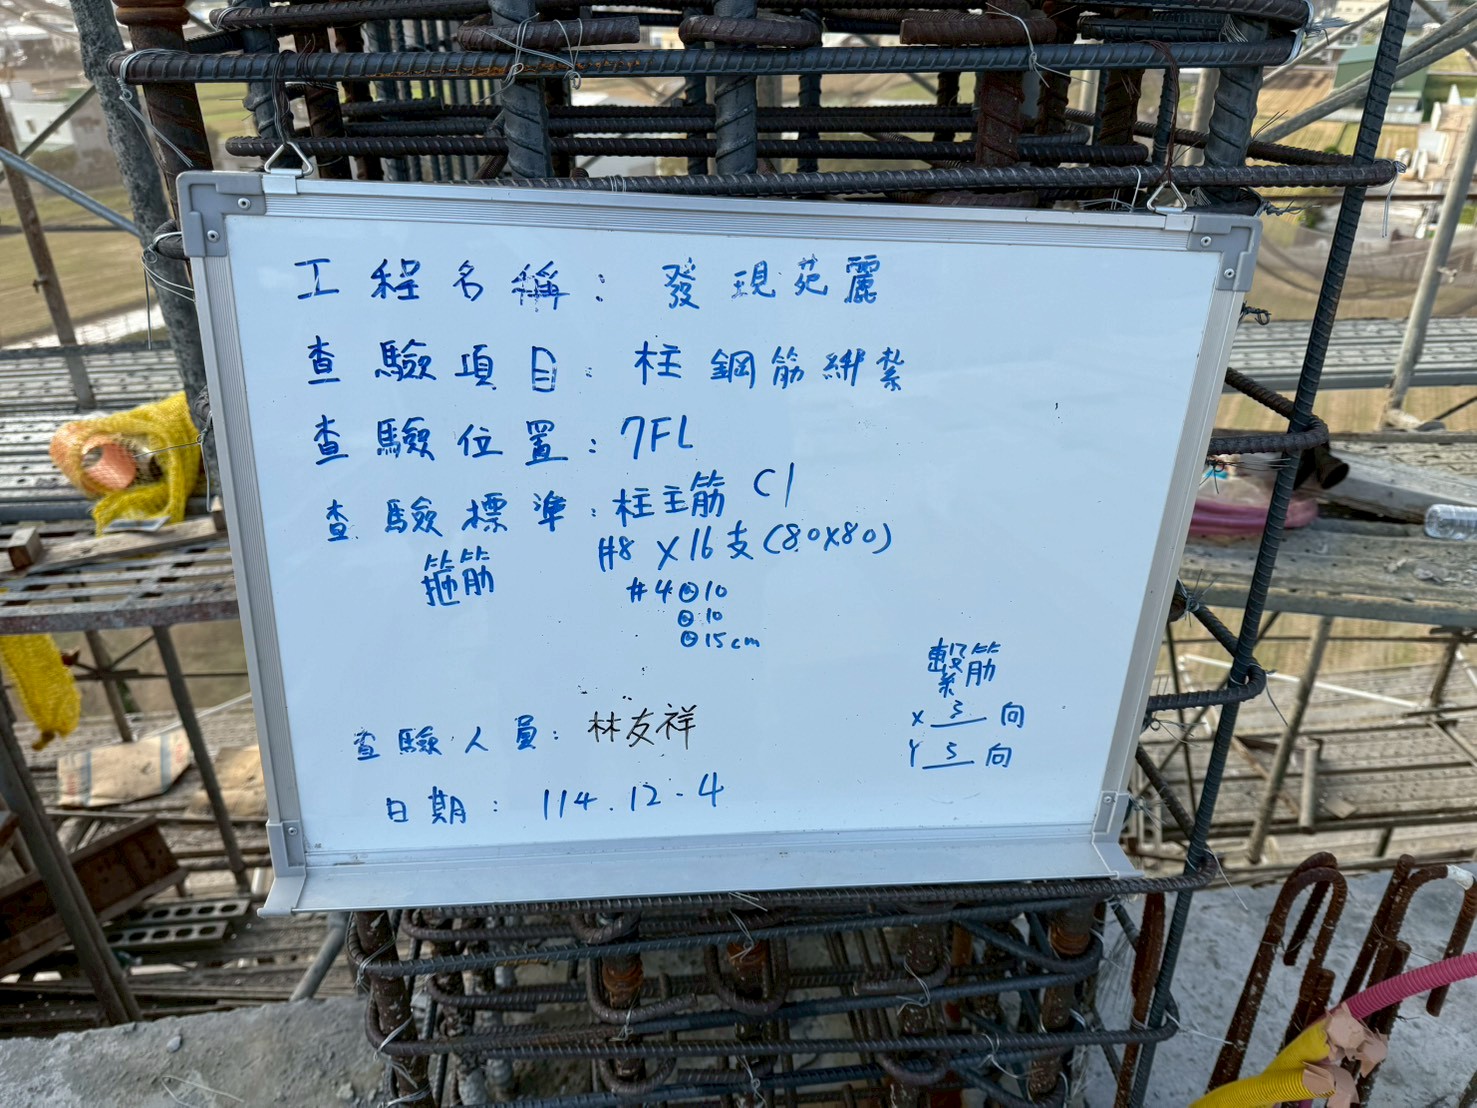 工程名稱：發現苑麗
查驗項目：柱鋼筋綁紮
查驗位置：7FL
查驗標準：柱主筋 C1
#8 X 16支(80X80)
箍筋 #4@10
@10
@15cm
繫筋
X 3 向
Y 3 向
查驗人員：林友祥
日期：114.12.4